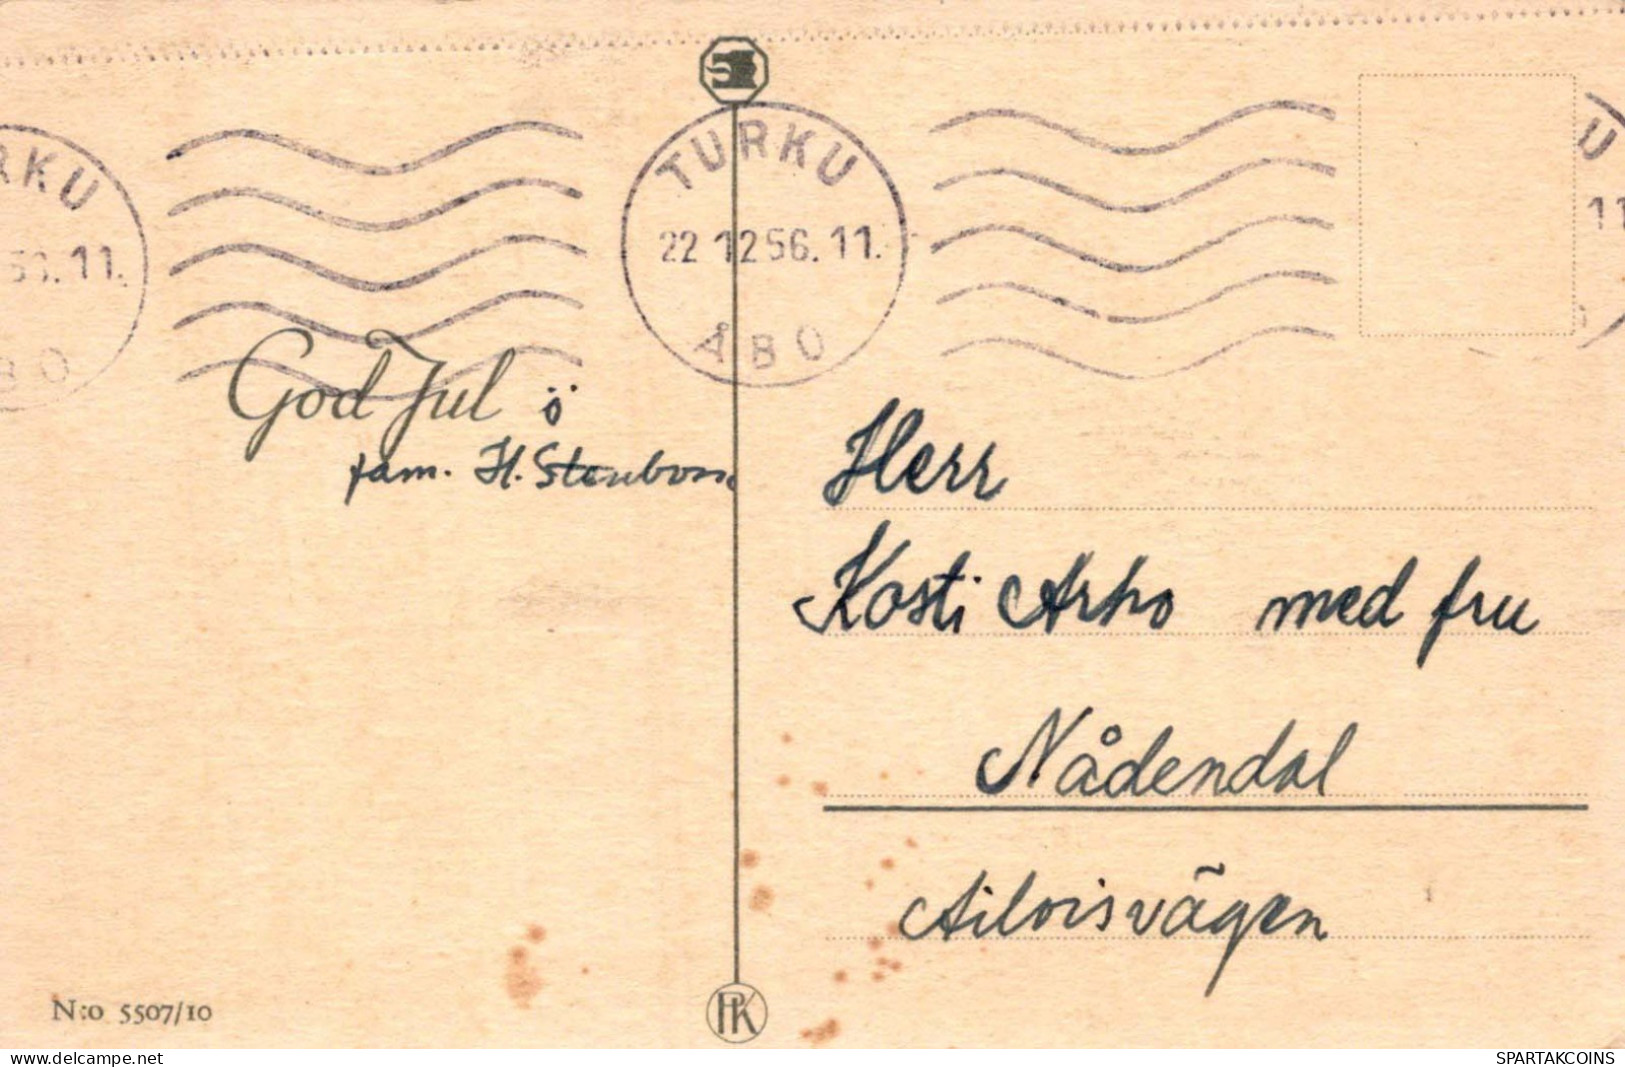 TURKU
22 12 56. 11.
ÅBO
RKU
56. 11.
BO
U
11
God Jul ö
fam. H. Stenbom
Herr
Kosti Arho med fru
Nådendal
Ailoisvägen
N:o 5507/10
PK
www.delcampe.net
SPARTAKCOINS